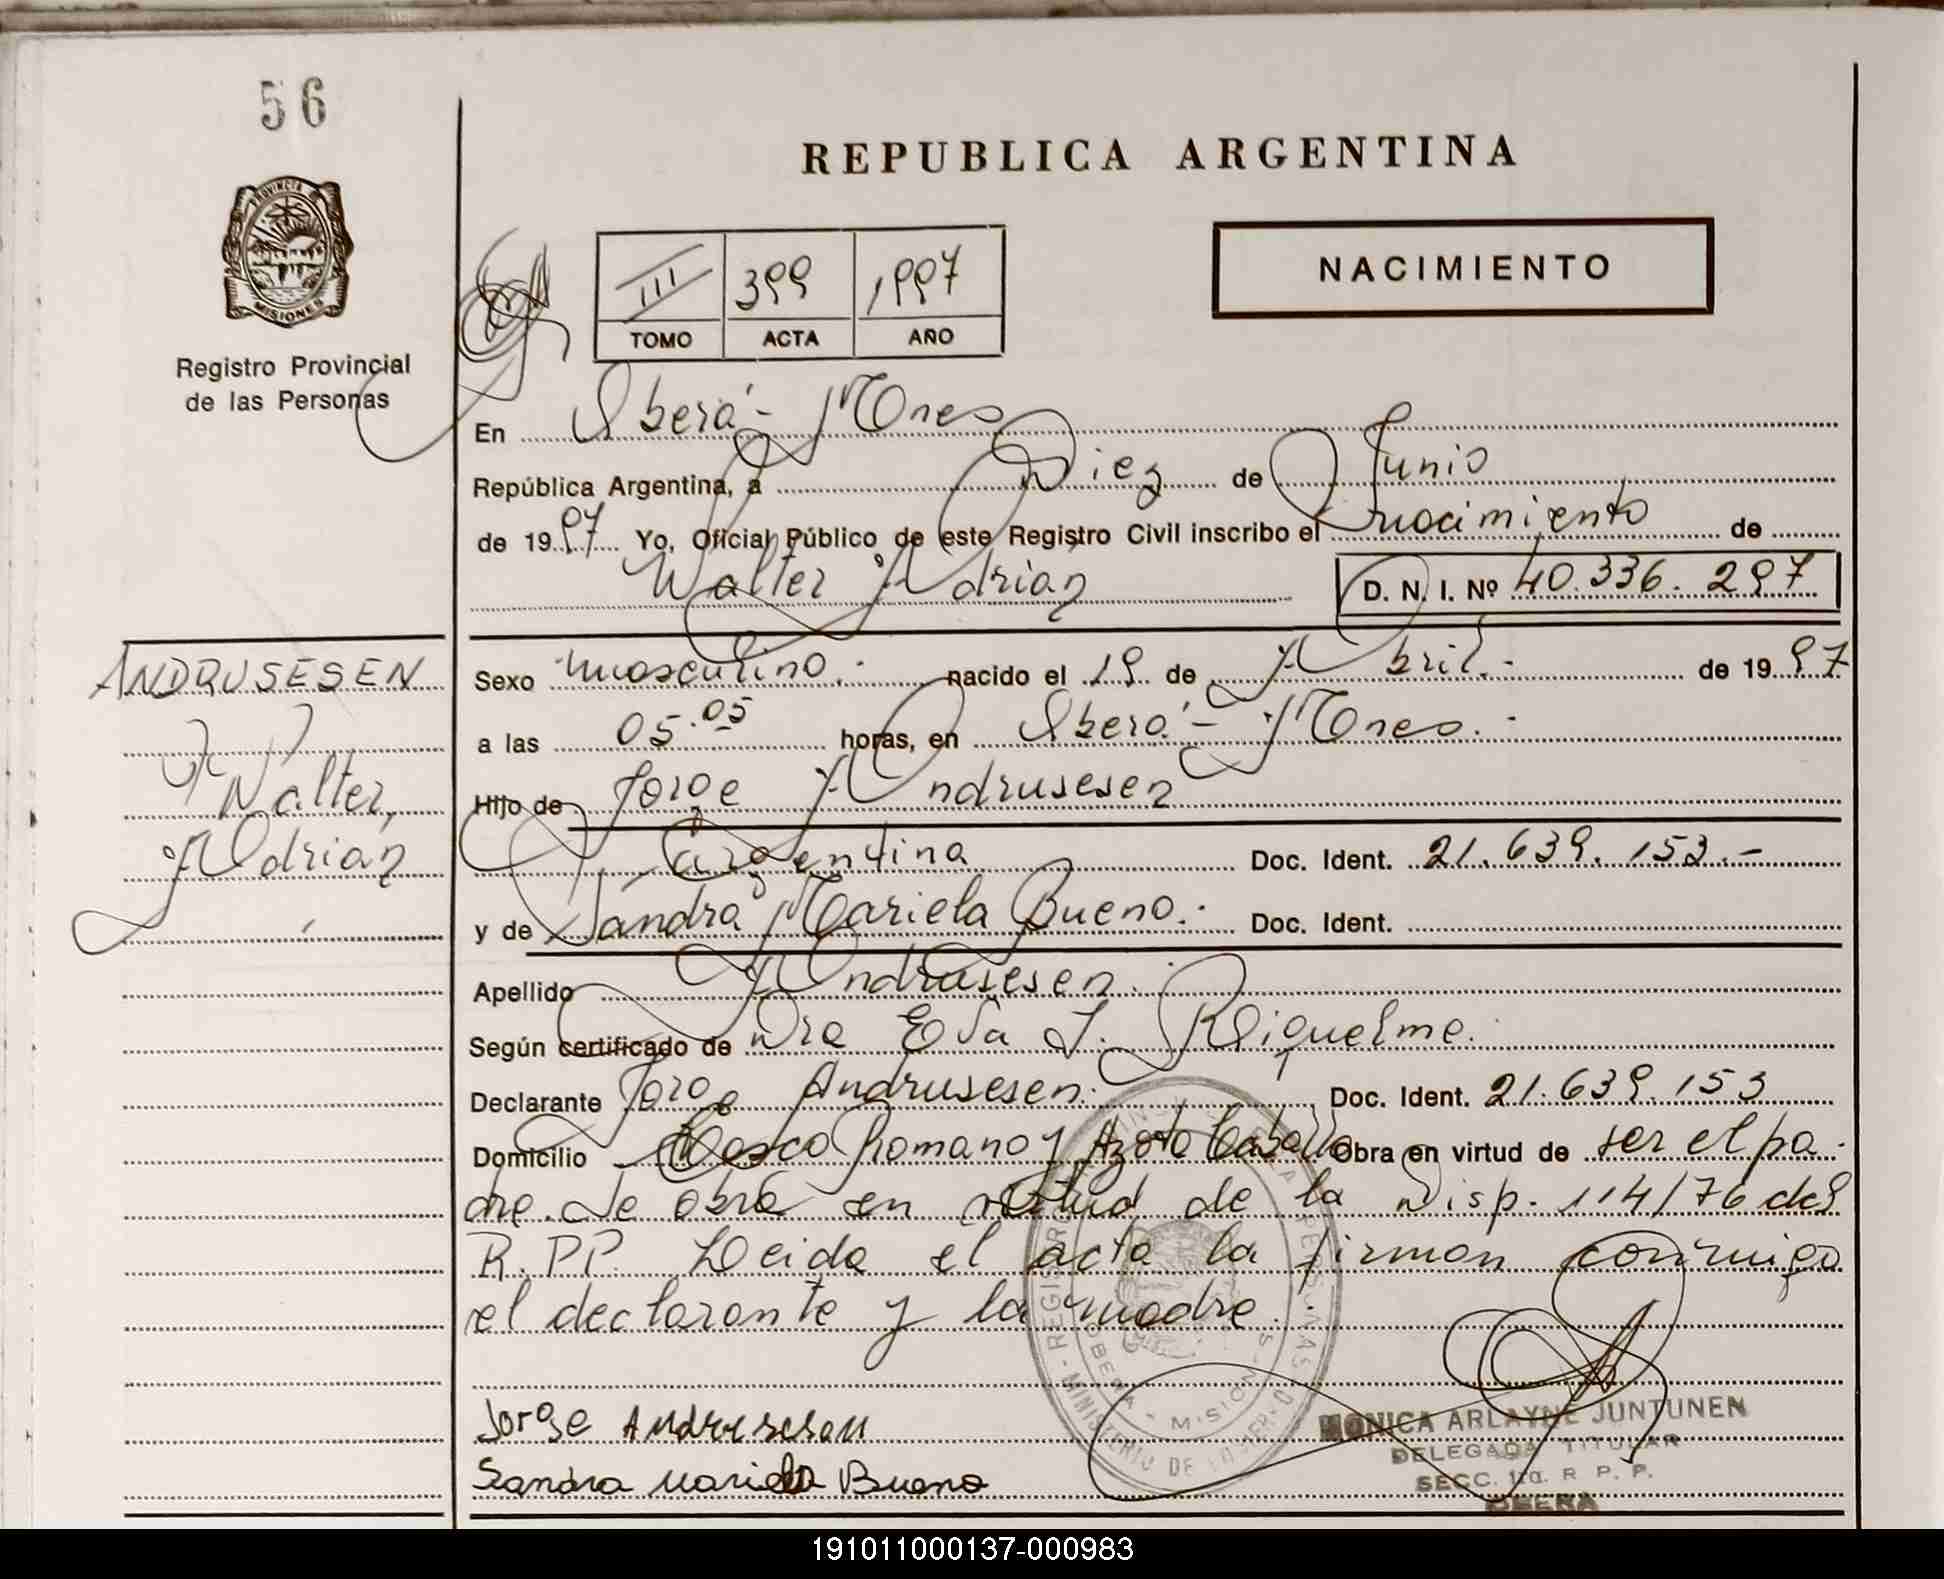 56
PROVINCIA DE
MISIONES
Registro Provincial
de las Personas
REPUBLICA ARGENTINA
III 399 1997
TOMO ACTA AÑO
NACIMIENTO
En Oberá - Mnes
República Argentina, a Diez de Junio
de 1997 Yo, Oficial Público de este Registro Civil inscribo el nacimiento de
Walter Adrián D. N. I. Nº 40.336.297
ANDRUSESEN
Walter
Adrián
Sexo masculino.- nacido el 19 de Abril.- de 1997
a las 05.05 horas, en Oberá - Mnes.-
Hijo de Jorge Andrusesen
Argentina Doc. Ident. 21.639.153.-
y de Sandra Mariela Bueno.- Doc. Ident.
Apellido Andrusesen.
Según certificado de Dra Elsa J. Riquelme.
Declarante Jorge Andrusesen. Doc. Ident. 21.639.153
Domicilio Romano y Obra en virtud de ser el pa-
dre. Se obra en virtud de la Disp. 114/76 del
R.P.P. Leida el acta la firman conmigo
el declarante y la madre.
Jorge Andrusesen
Sandra Mariela Bueno
MONICA ARLAYNE JUNTUNEN
DELEGADA TITULAR
SECC. 1ra. R. P. P.
OBERA
191011000137-000983